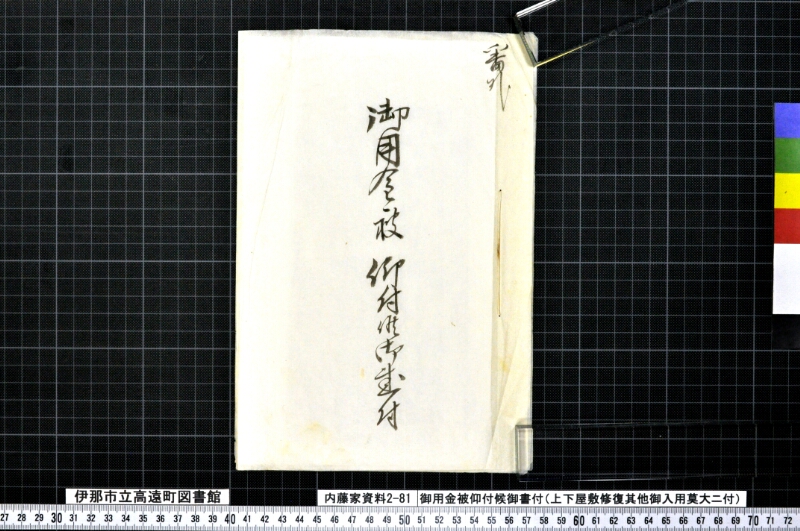 番外
御用金被 仰付候御書付
伊那市立高遠町図書館
内藤家資料2-81
御用金被仰付候御書付(上下屋敷修復其他御入用莫大ニ付)
27 28 29 30 31 32 33 34 35 36 37 38 39 40 41 42 43 44 45 46 47 48 49 50 51 52 53 54 55 56 57 58 59 60 61 62 63 64 65 66 67 68 69 70 71 72